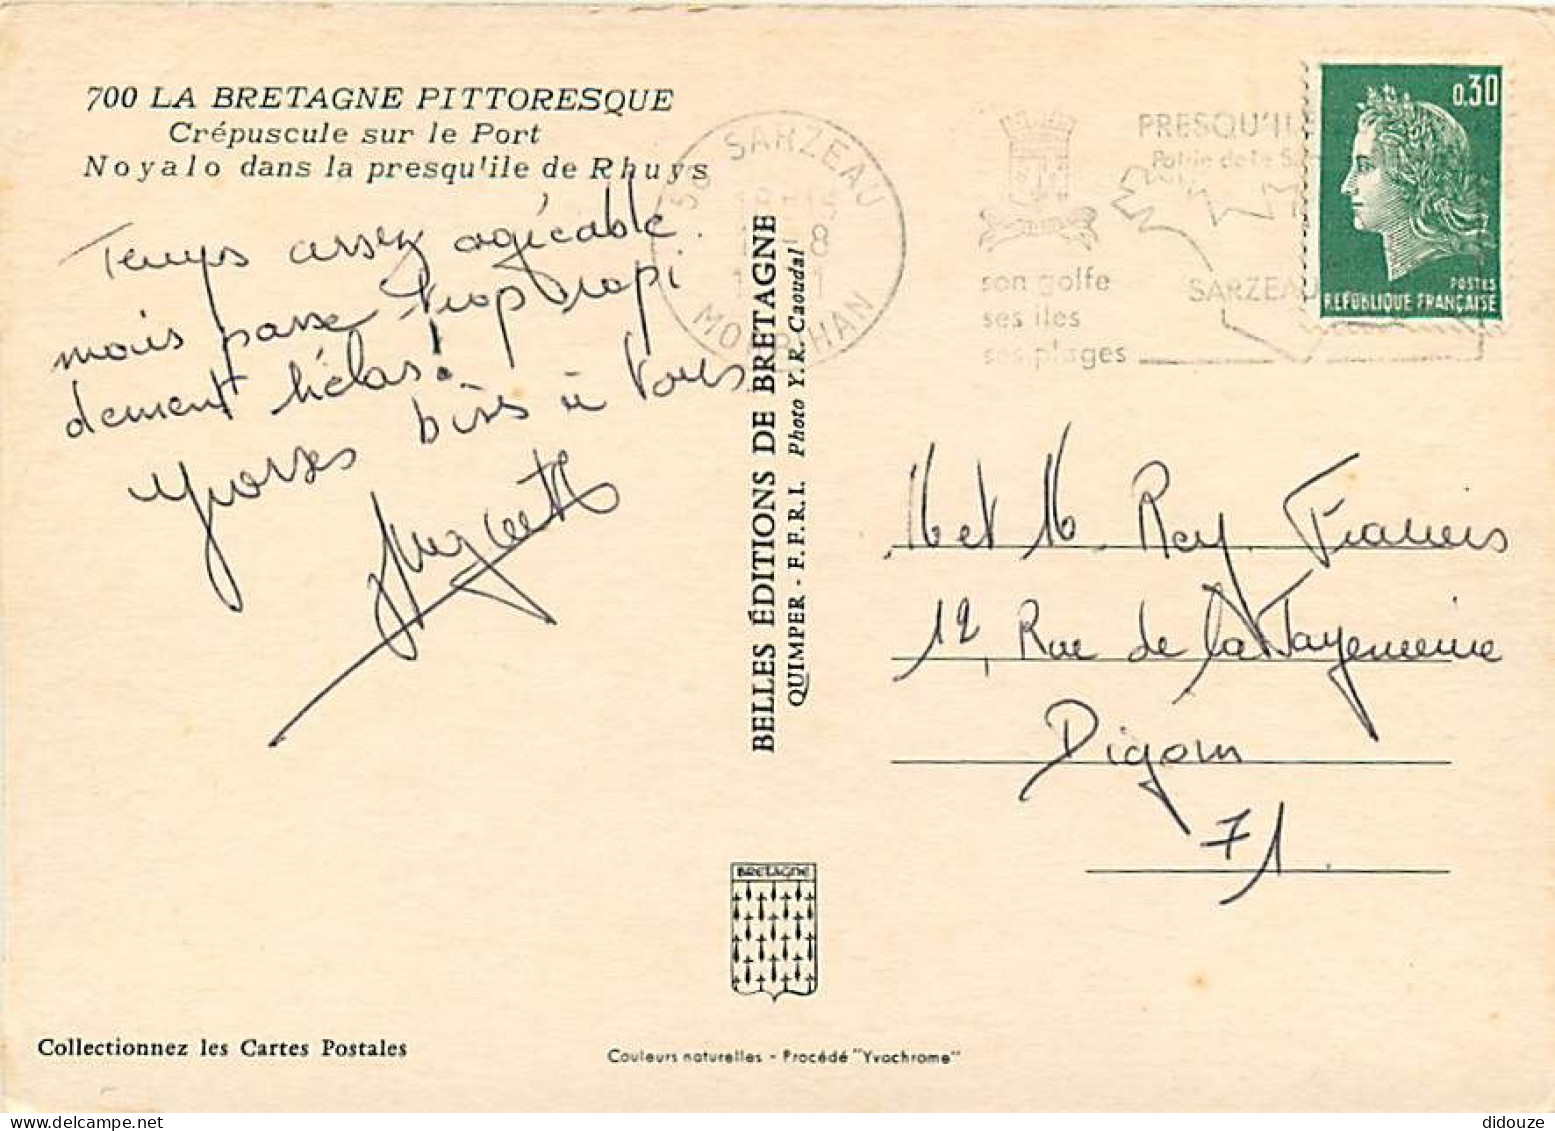 700 LA BRETAGNE PITTORESQUE
Crépuscule sur le Port
Noyalo dans la presqu'ile de Rhuys
Temps assez agréable
mais passe trop rapi
dement hélas!
Grosses bises à Vous
Huguette
56 SARZEAU
MORBIHAN
PRESQU'ILE
son golfe
ses iles
ses plages
SARZEAU
0.30
POSTES
REPUBLIQUE FRANÇAISE
BELLES ÉDITIONS DE BRETAGNE
QUIMPER - F.F.R.I. Photo Y.R. Caoudal
M et M. Rey Francis
12, Rue de la
Digoin
71.
BRETAGNE
Collectionnez les Cartes Postales
Couleurs naturelles - Procédé "Yvochrome"
didouze